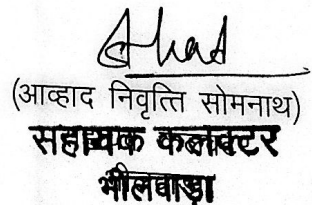 (आव्हाद निवृत्ति सोमनाथ)
सहायक कलक्टर
भीलवाड़ा